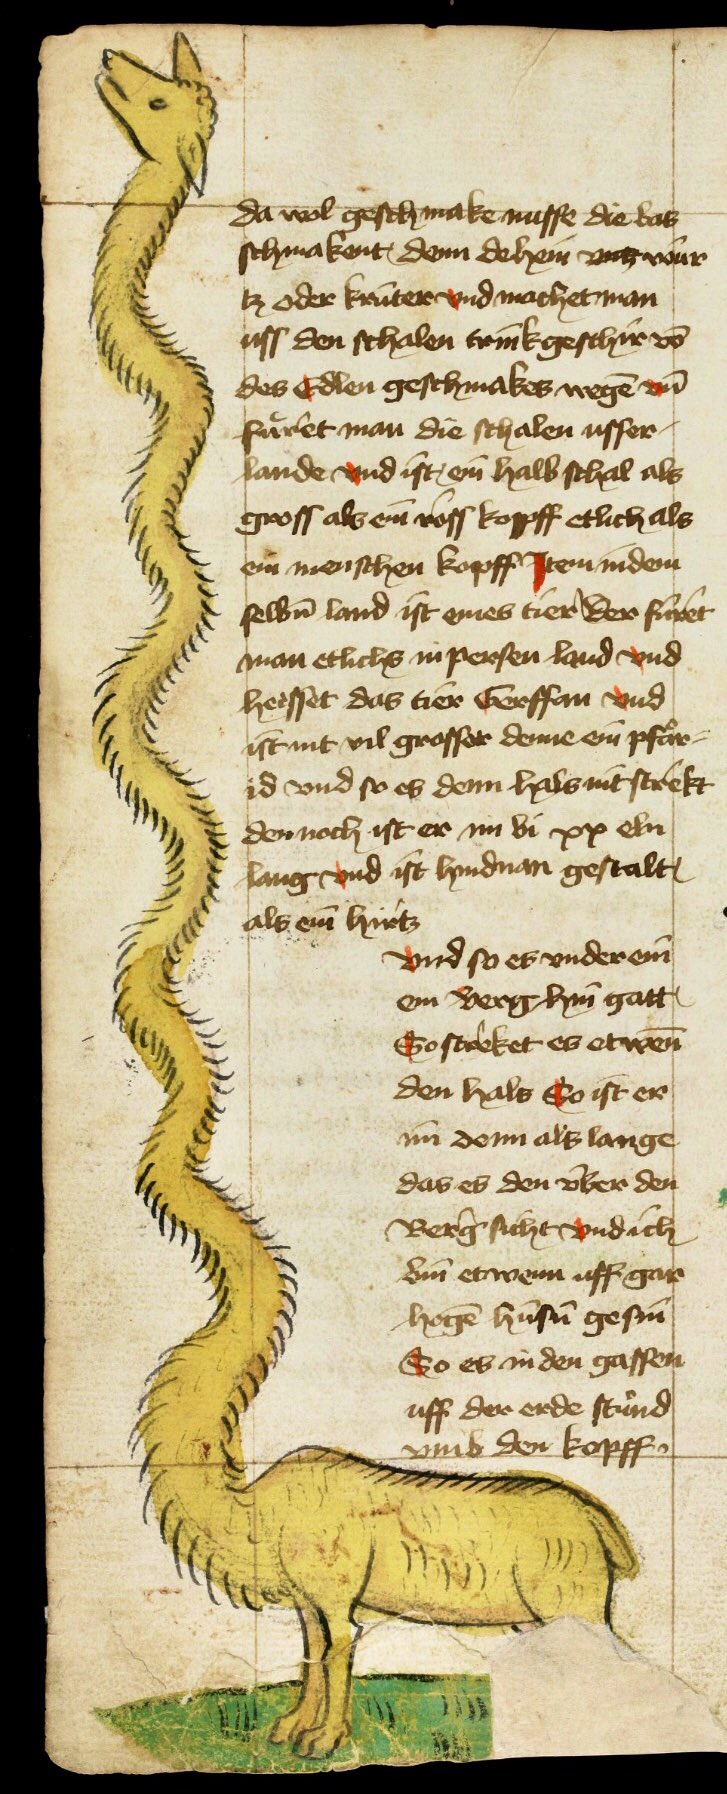 da wol geschmake nusse die bas
schmakent denn dehein wur
tz oder krüter vnd machet man
uss den schalen trinkgeschir vō
des Edlen geschmakes wegē vn̄
füret man die schalen usser
lande vnd ist ein halb schal als
gross als ein ross kopff etlich als
ein menschen kopff Item in dem
selbn̄ land ist eines tier Der füret
man etlichs in persen land vnd
heisset das tier Gerffan vnd
ist nit vil grosser denne ein pfär-
id vnd so es denn hals nit strekt
dennoch ist er im bi xx eln
lang vnd ist hyndnan gestalt
als ein hirtz
vnd so es vnder ein
em Berg hin gatt
So streket es etwen̄
den hals So ist er
im denn als lange
das es den vber den
Berg sicht vnd ich
bin etwenn uff gar
hogē hüsn̄ gesin
So es in den gassen
uff der erde stünd
vmb den kopff